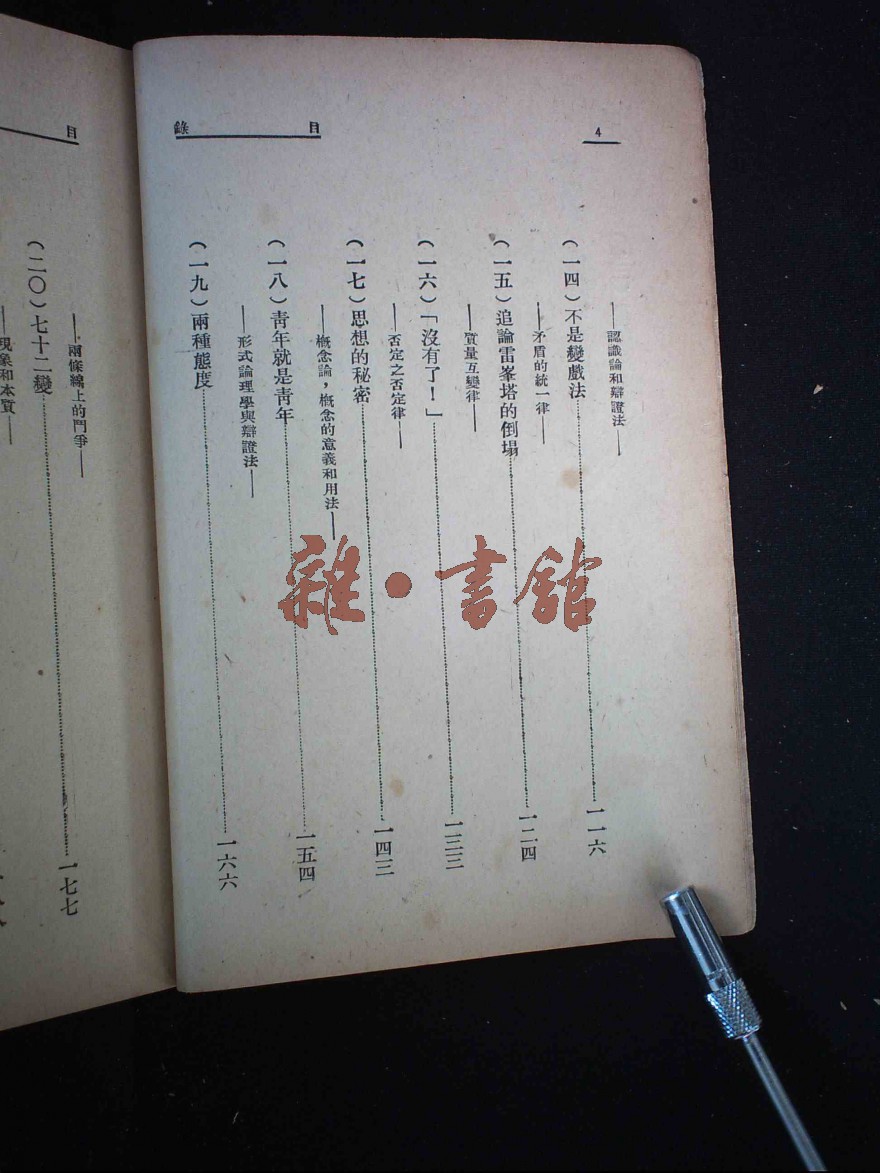 4
目錄
——認識論和辯證法——
(一四)不是變戲法……一一六
——矛盾的統一律——
(一五)追論雷峯塔的倒塌……一二四
——質量互變律——
(一六)「沒有了!」……一三三
——否定之否定律——
(一七)思想的秘密……一四三
——概念論,概念的意義和用法——
(一八)靑年就是靑年……一五四
——形式論理學與辯證法——
(一九)兩種態度……一六六
目
——兩條綫上的鬥爭——
(二〇)七十二變……一七七
——現象和本質——
雜·書館